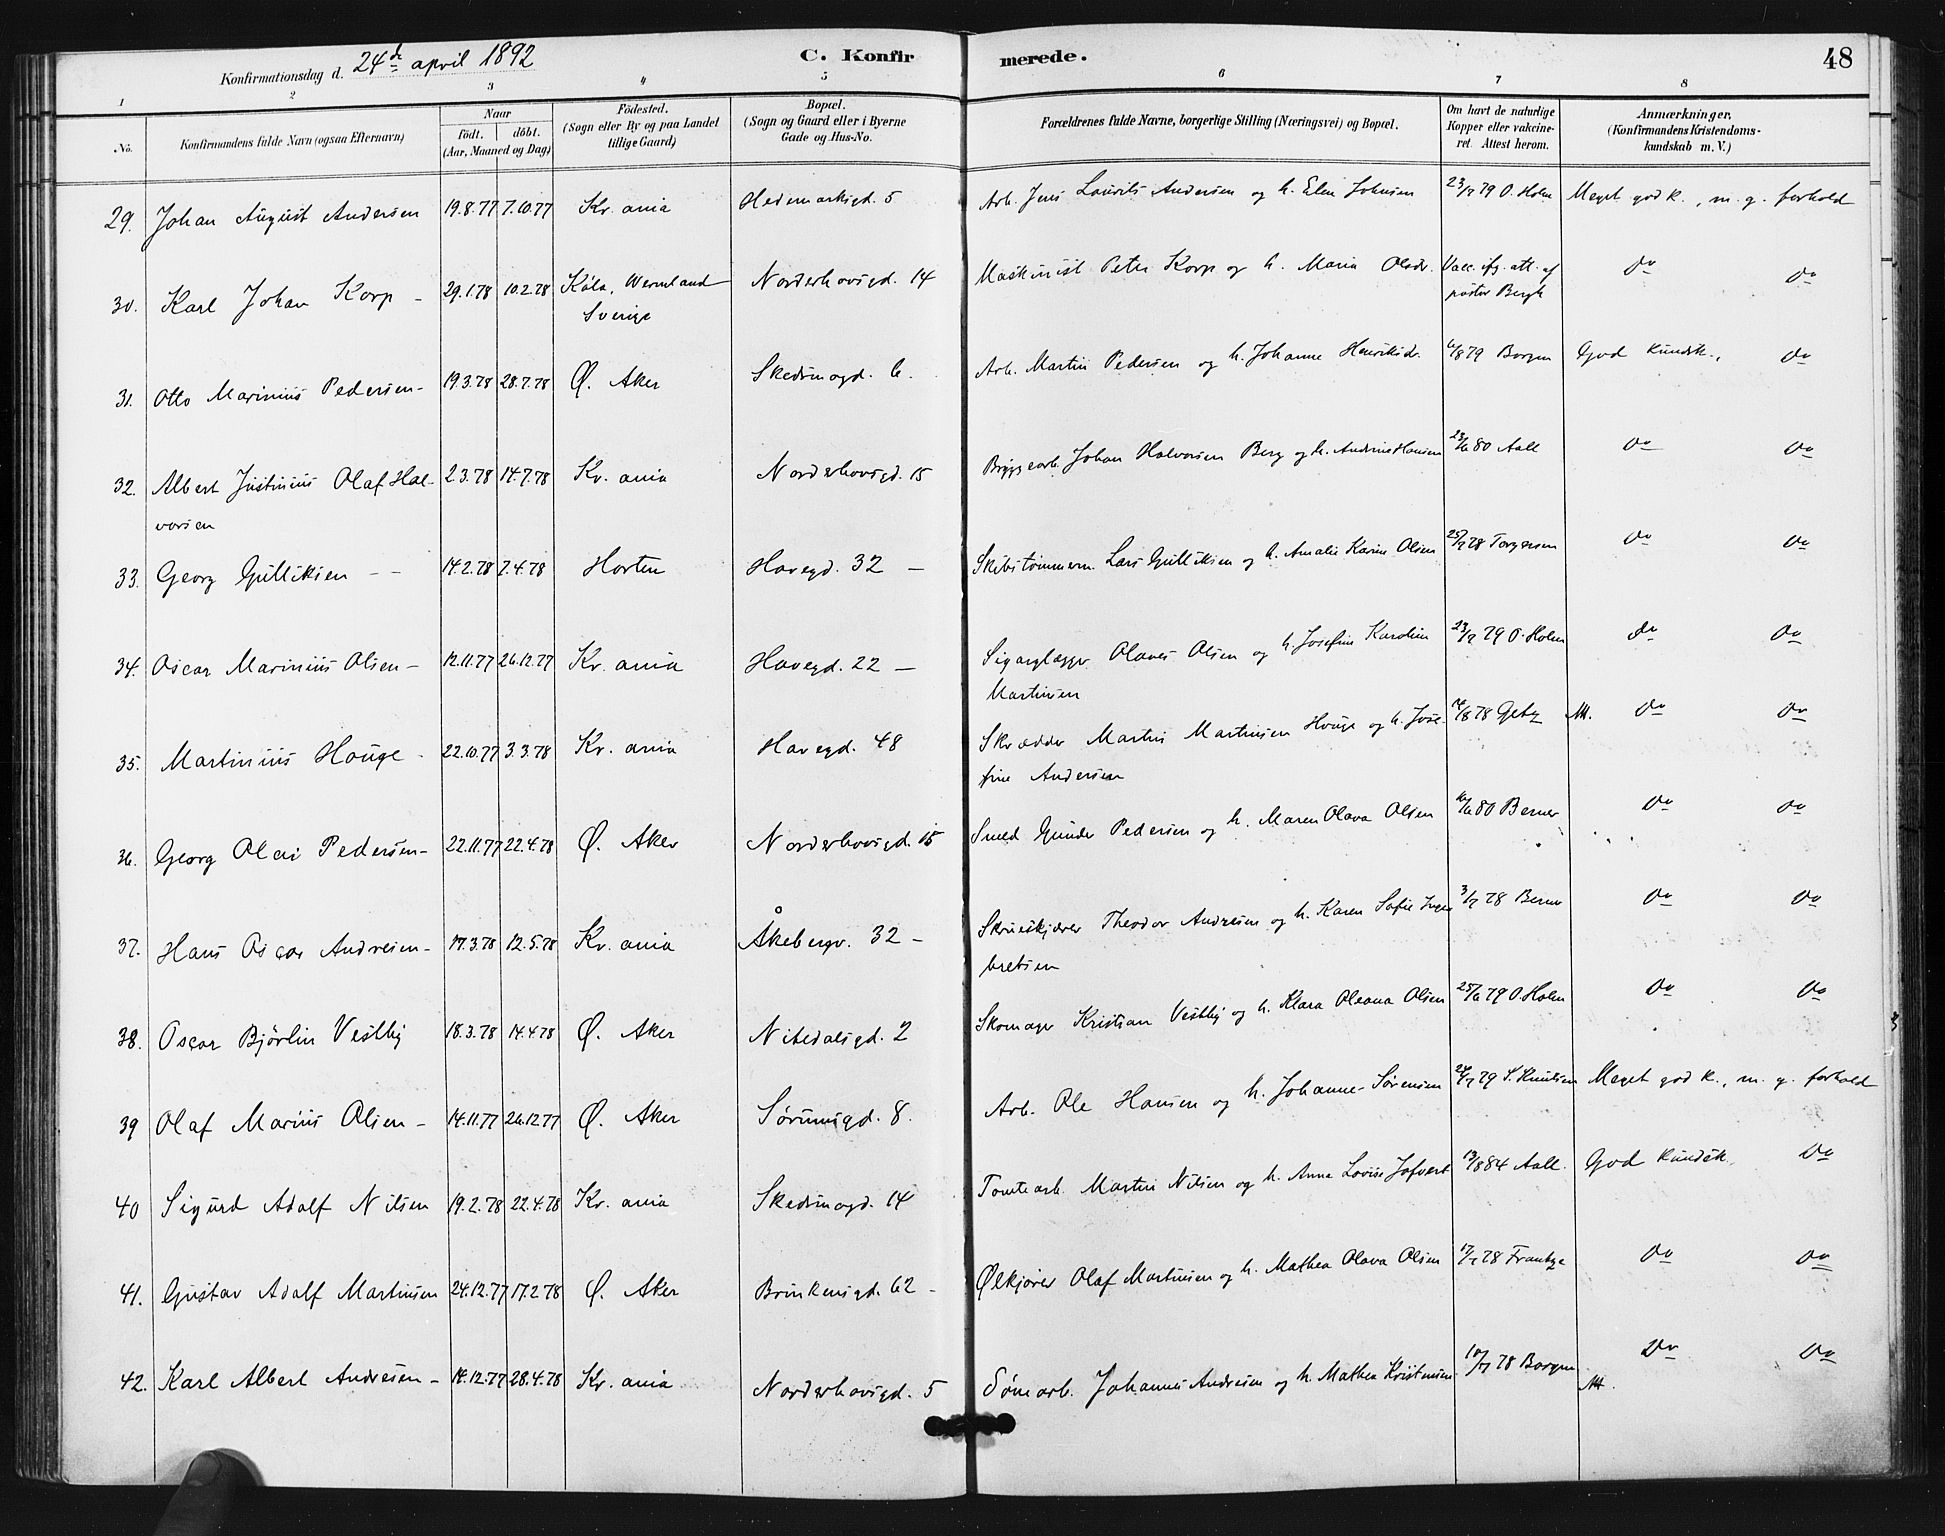 Konfirmationsdag d. 24de april 1892 C. Konfirmerede. 48
1 2 3 4 5 6 7 8
No. Konfirmandens fulde Navn (ogsaa Efternavn) Naar født. døbt. (Aar, Maaned og Dag) Födested. (Sogn eller By og paa Landet tillige Gaard) Bopæl. (Sogn og Gaard eller i Byerne Gade og Hus-No. Forældrenes fulde Navne, borgerlige Stilling (Næringsvei) og Bopæl. Om havt de naturlige Kopper eller vakcineret. Attest herom. Anmærkninger, (Konfirmandens Kristendomskundskab m. V.)
29. Johan August Andersen 19.8.77 7.10.77 Kr.ania Hedemarksgd. 5 Arb. Jens Laurits Andersen og h. Elen Johnsen 23/7 79 O. Holm Meget god k., m. g. forhold
30. Karl Johan Korp - 29.1.78 10.2.78 Køla, Wermland Norderhovsgd. 14 Maskinist Peter Korp og h. Maria Olsdr. Vacc. ifg. att. af do do
Sverige pastor Bergh
31. Otto Marinius Pedersen - 19.3.78 28.7.78 Ø. Aker Skedsmogd. 6. Arb. Martin Pedersen og h. Johanne Henriksdr. 6/8 79 Borgen God kundsk., do
32. Albert Justinius Olaf Hal- 2.3.78 14.7.78 Kr.ania Norderhovsgd. 15 Bryggearb. Johan Halvorsen Berg og h. Andrine Hansen 23/6 80 Aall do do
vorsen
33. Georg Gulliksen - - 14.2.78 7.4.78 Horten Havegd. 32 - Skibstømmerm. Lars Gulliksen og h. Amalie Karine Olsen 25/7 78 Torgersen do do
34. Oscar Marinius Olsen - 12.11.77 26.12.77 Kr.ania Havegd. 22 - Sigarglægger Olaves Olsen og h. Josefine Karoline 23/7 79 O. Holm do do
Martinsen
35. Martinius Houge - 22.10.77 3.3.78 Kr.ania Havegd. 48 Skrædder Martin Martinsen Houge og h. Jose- 14/8 78 Getz M. do do
fine Andersen
36. Georg Olai Pedersen - 22.11.77 22.4.78 Ø. Aker Norderhovsgd. 15 Smed Gunder Pedersen og h. Maren Olava Olsen 16/6 80 Berner do do
37. Hans Oscar Andresen - 17.3.78 12.5.78 Kr.ania Åkebergv. 32 - Skrueskjærer Theodor Andresen og h. Karen Sofie Inge- 3/7 78 Berner do do
bretsen
38. Oscar Bjørlin Vestby 18.3.78 14.4.78 Ø. Aker Nitedalsgd. 2 Skomager Kristian Vestby og h. Klara Oleana Olsen 25/6 79 O. Holm do do
39 Olaf Marius Olsen - 14.11.77 26.12.77 Ø. Aker Sørumsgd. 8. Arb. Ole Hansen og h. Johanne Sørensen 24/7 79 S. Knutsen Meget god k., m. g. forhold
40 Sigurd Adolf Nilsen 19.2.78 22.4.78 Kr.ania Skedsmogd. 14 Tomtearb. Martin Nilsen og h. Anna Lovise Jofvert 13/8 84 Aall. God kundsk. do
41. Gustav Adolf Martinsen 24.12.77 17.2.78 Ø. Aker Brinkensgd. 62 - Ølkjører Olaf Martinsen og h. Mathea Olava Olsen 17/7 78 Frantze do do
42. Karl Albert Andresen - 14.12.77 28.4.78 Kr.ania Norderhovsgd. 5 Sømarb. Johannes Andresen og h. Mathea Kristensen 10/7 78 Borgen M. do do